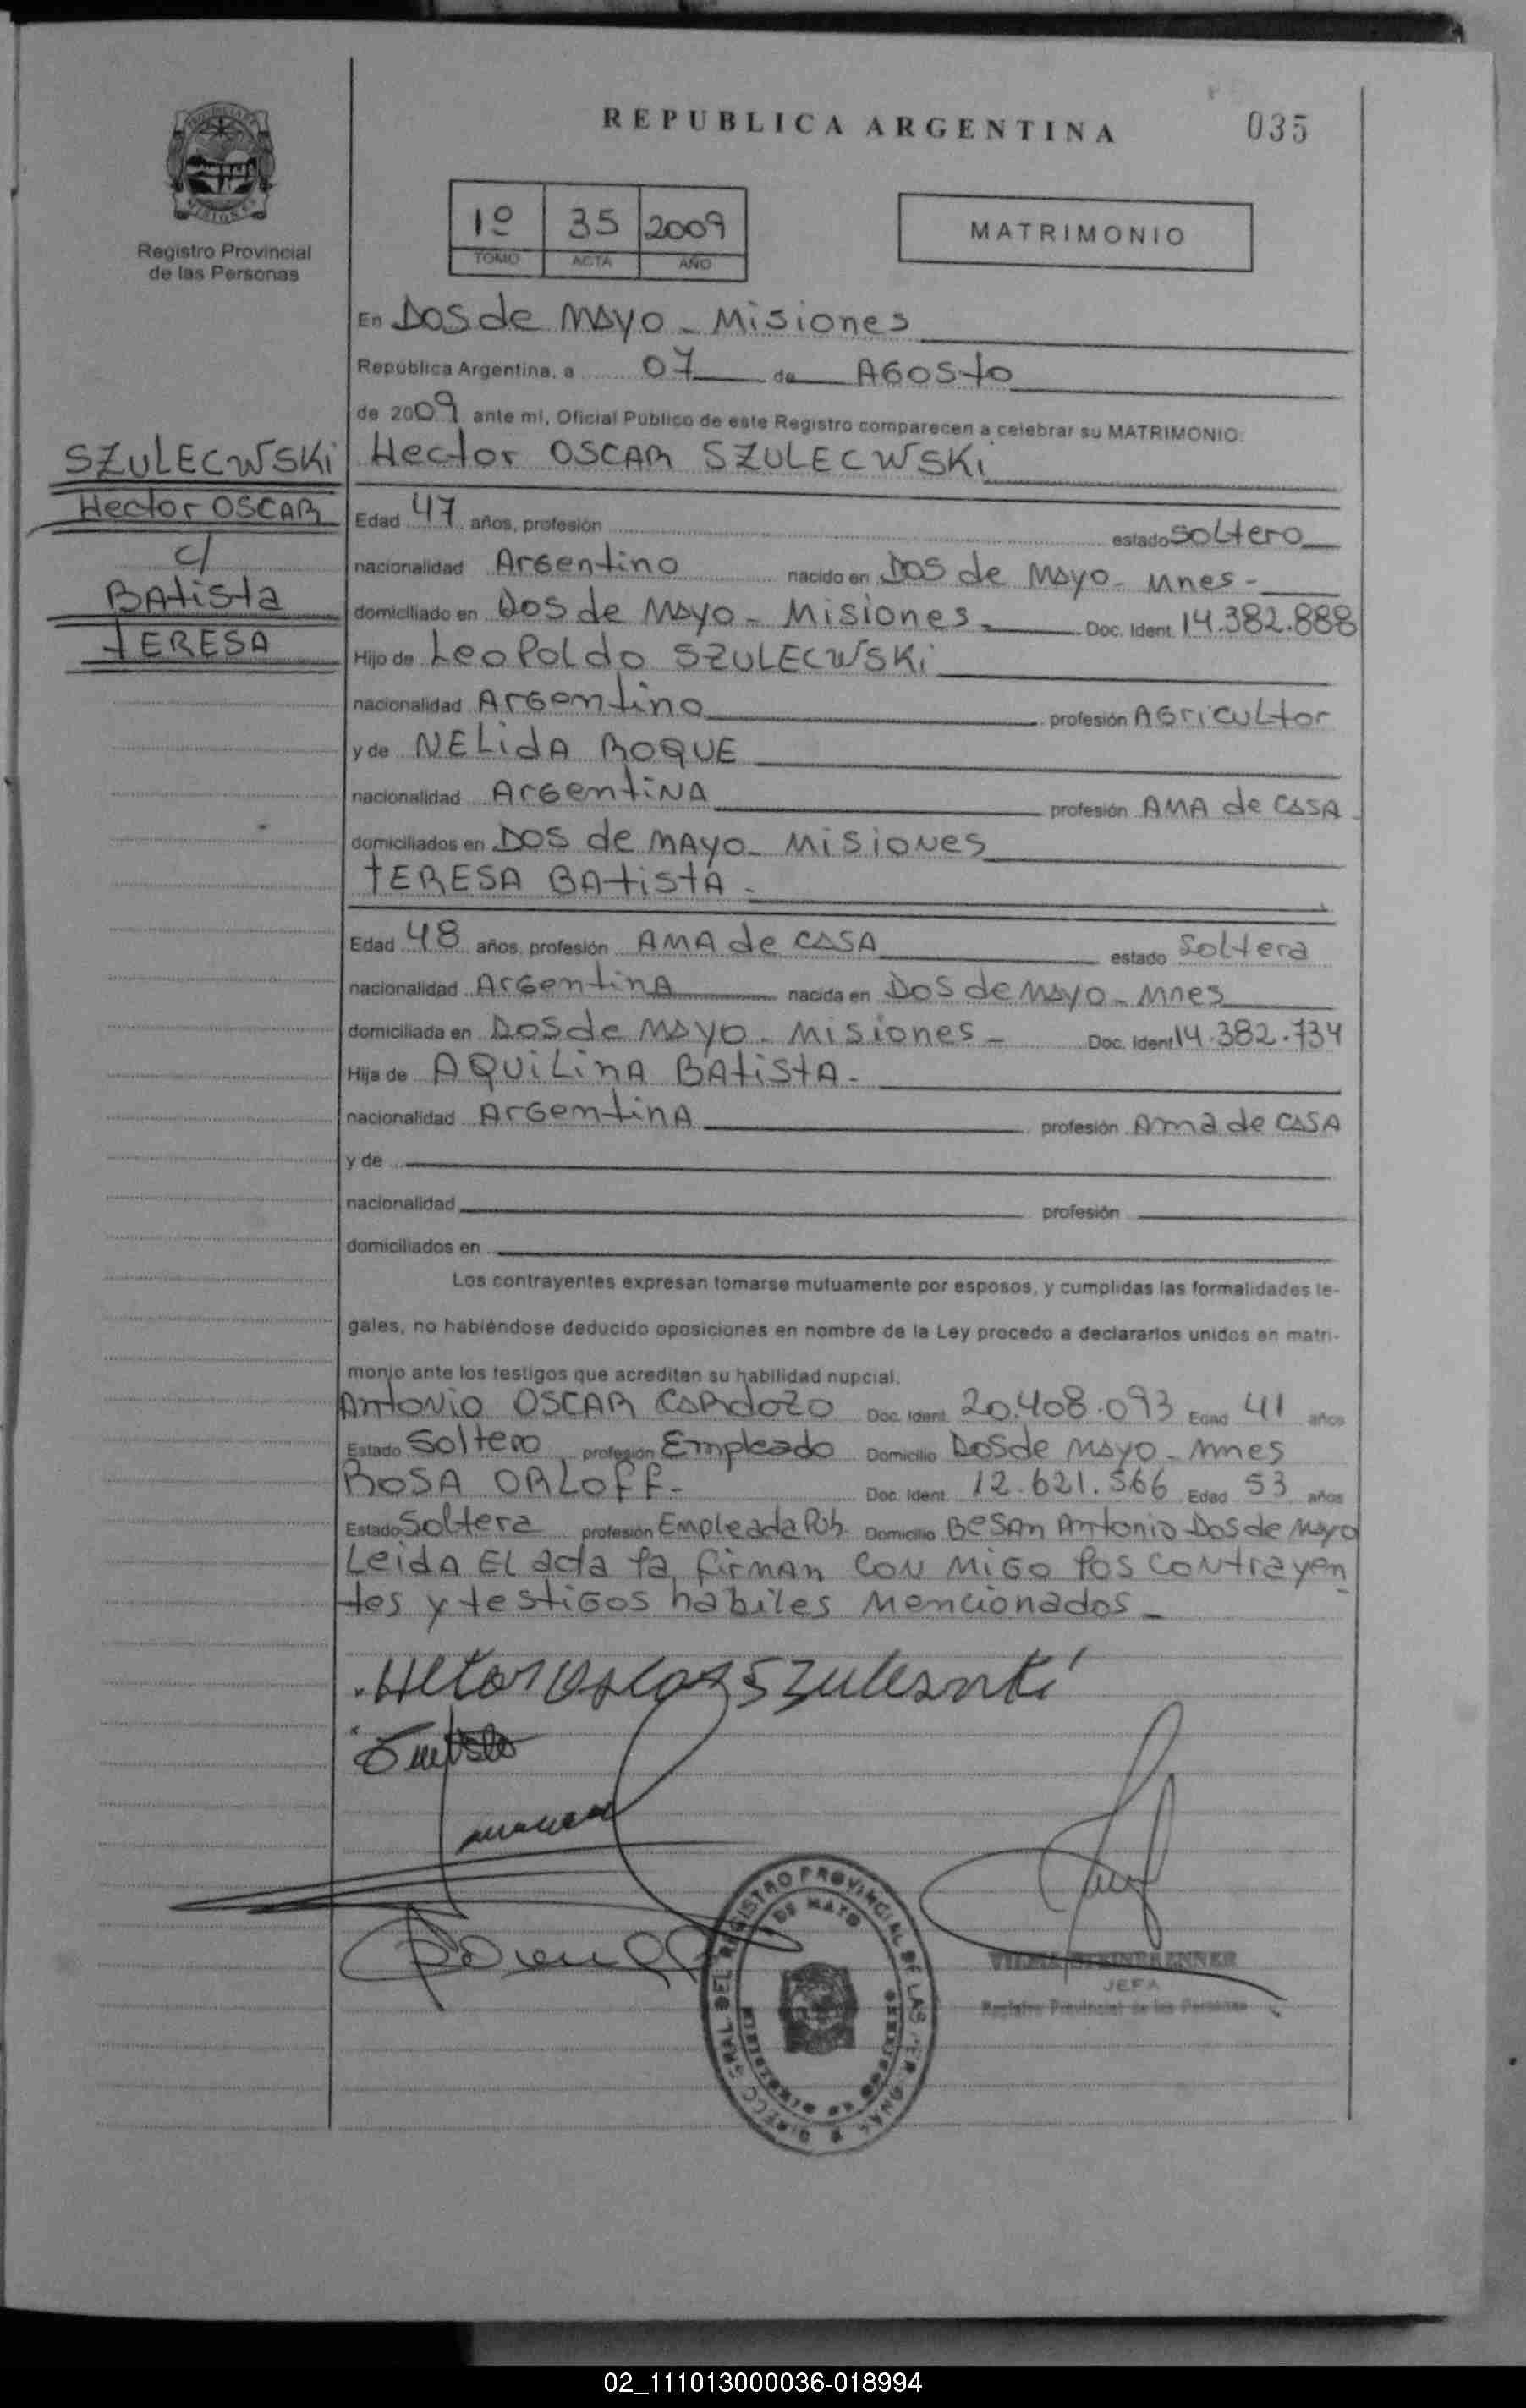 REPUBLICA ARGENTINA
035
Registro Provincial
de las Personas
1º 35 2009
TOMO ACTA AÑO
MATRIMONIO
En Dos de Mayo - Misiones
República Argentina, a 07 de AGOSto
de 2009 ante mí, Oficial Público de este Registro comparecen a celebrar su MATRIMONIO:
SZULECWSKi
Hector OSCAR
c/
BAtista
tERESA
Hector OSCAR SZULECWSKi
Edad 47 años, profesión estado Soltero
nacionalidad Argentino nacido en Dos de Mayo - Mnes -
domiciliado en Dos de Mayo - Misiones - Doc. Ident. 14.382.888
Hijo de LeoPoldo SZULECWSKi
nacionalidad Argentino profesión AGricultor
y de NELidA ROQUE
nacionalidad ArgentiNA profesión AMA de CASA
domiciliados en Dos de MAyo - MisioNes
tERESA BAtistA -
Edad 48 años, profesión AMA de CASA estado Soltera
nacionalidad ArgentinA nacida en Dos de Mayo - Mnes
domiciliada en Dos de Mayo - Misiones - Doc. Ident 14.382.734
Hija de AQUiLinA BAtistA -
nacionalidad ArgentinA profesión Ama de CASA
y de
nacionalidad profesión
domiciliados en
Los contrayentes expresan tomarse mutuamente por esposos, y cumplidas las formalidades le-
gales, no habiéndose deducido oposiciones en nombre de la Ley procedo a declararlos unidos en matri-
monio ante los testigos que acreditan su habilidad nupcial.
AntoNio OSCAR CARdoZo Doc. Ident. 20.408.093 Edad 41 años
Estado Soltero profesión Empleado Domicilio Dos de Mayo - Mnes
ROSA ORLOFF - Doc. Ident. 12.621.566 Edad 53 años
Estado Soltera profesión Empleada Púb. Domicilio BeSAn Antonio Dos de Mayo
LeidA EL acta la firmAn CON MiGo los CoNtrayen
tes y testiGos habiles Mencionados -
REGISTRO PROVINCIAL DE LAS
DE MAYO
JEFA
Registro Provincial de las Personas
02_111013000036-018994